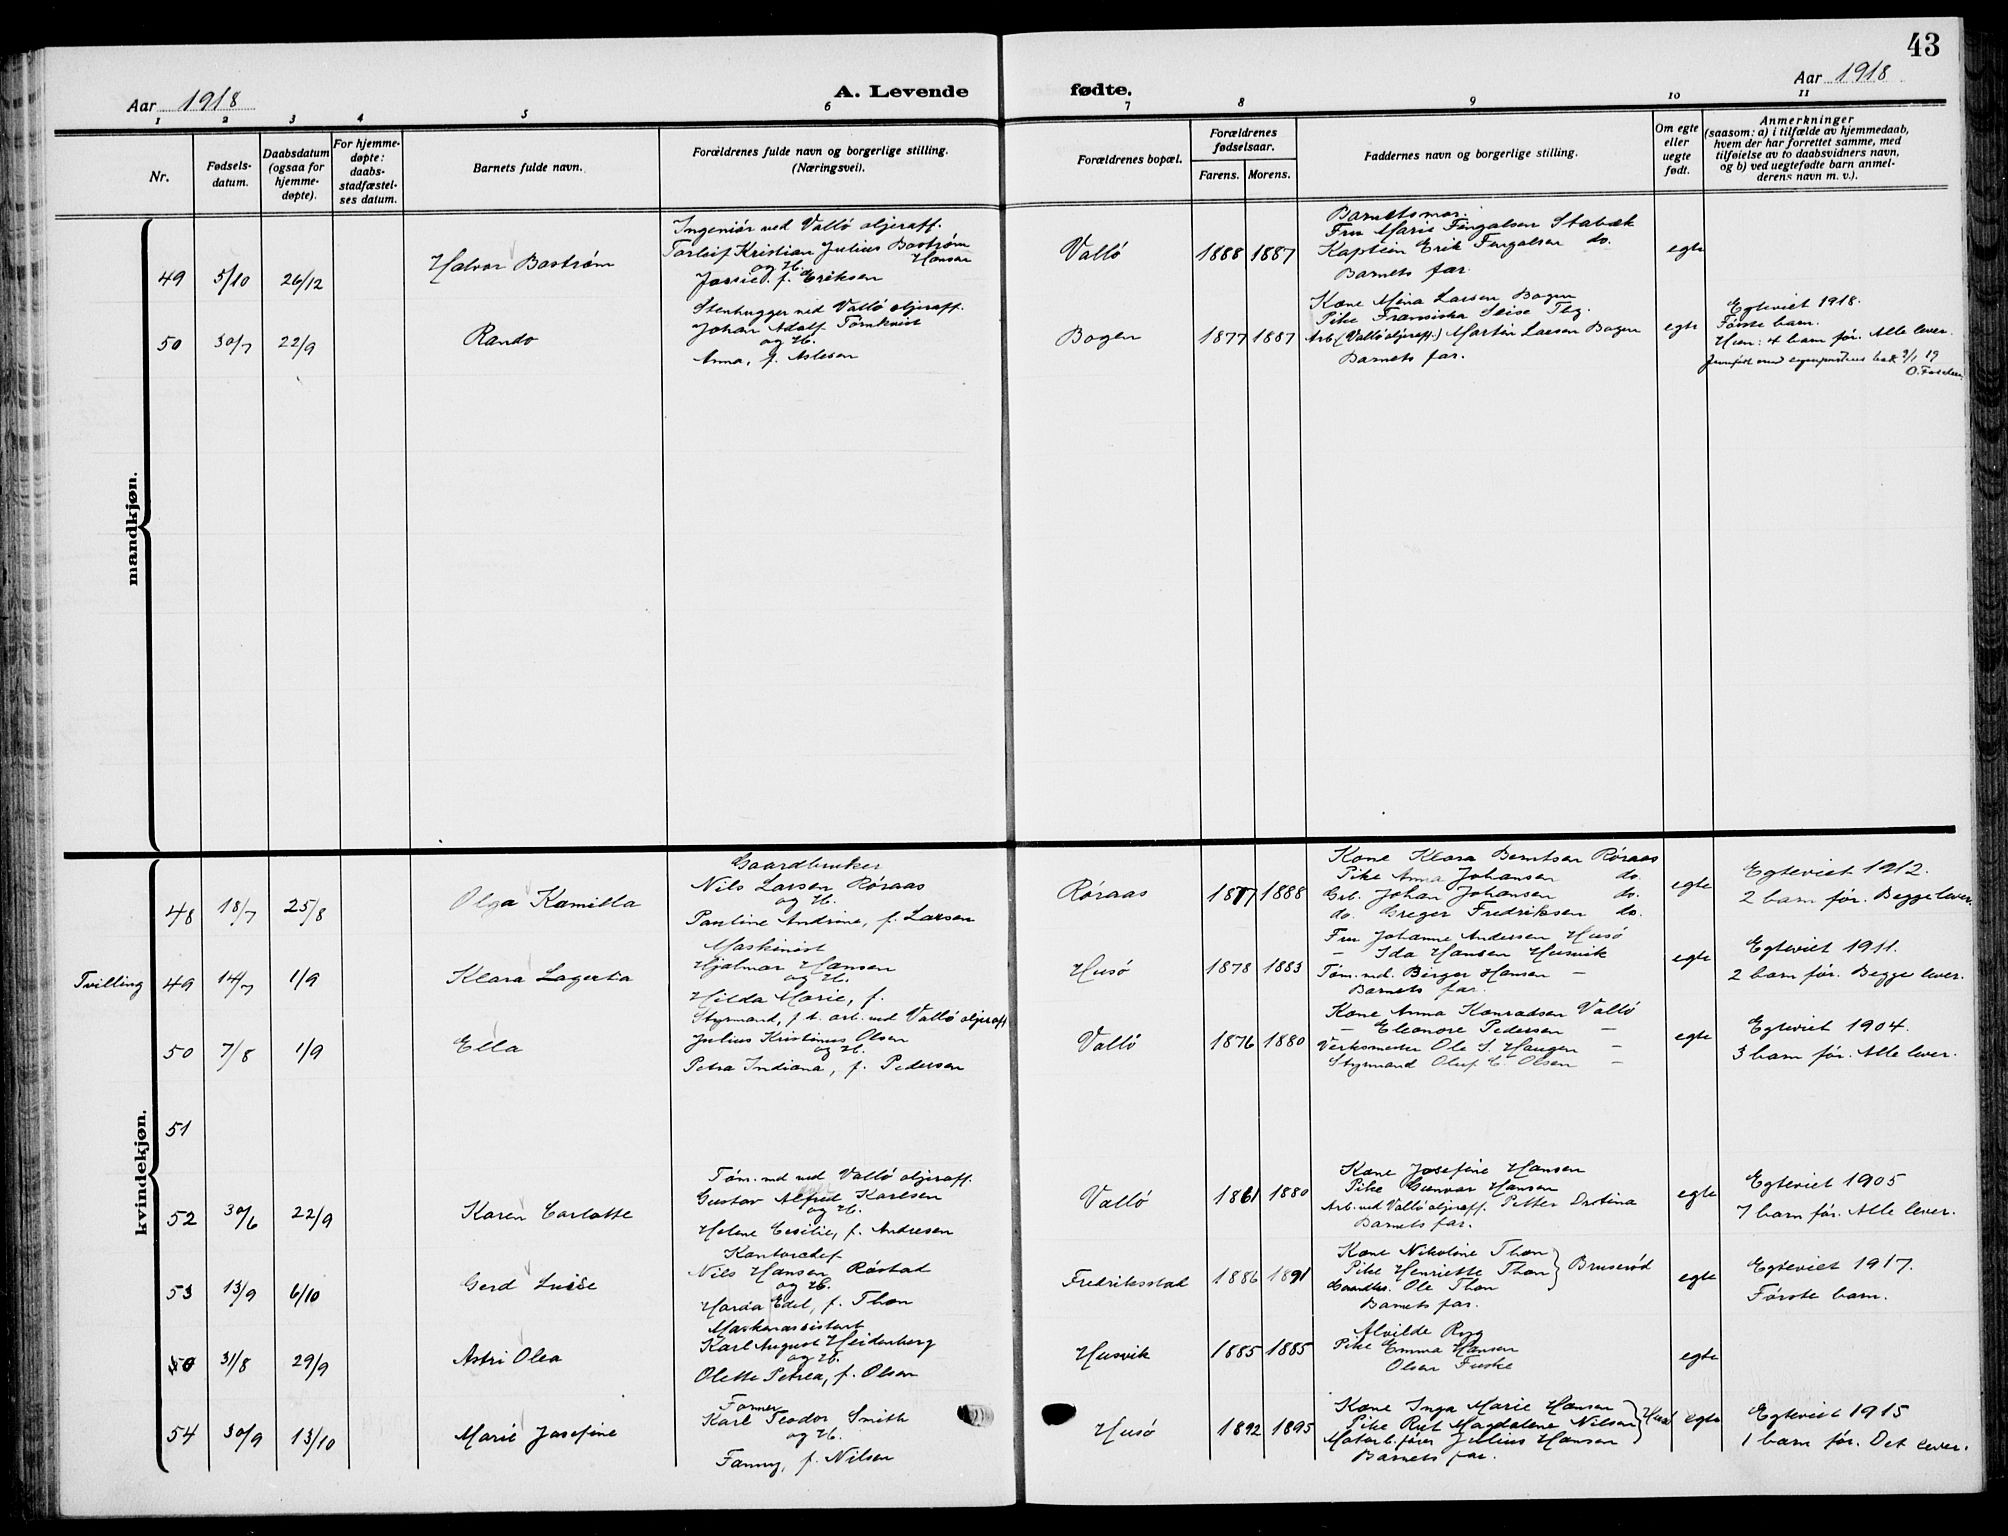 43
Aar 1918
A. Levende fødte.
Aar 1918
1 2 3 4 5 6 7 8 9 10 11
Nr.
Fødsels-
datum.
Daabsdatum
(ogsaa for
hjemme-
døpte).
For hjemme-
døpte:
daabs-
stadfæstel-
ses datum.
Barnets fulde navn.
Forældrenes fulde navn og borgerlige stilling.
(Næringsvei).
Forældrenes bopæl.
Forældrenes
fødselsaar.
Farens. Morens.
Faddernes navn og borgerlige stilling.
Om egte
eller
uegte
født.
Anmerkninger
(saasom: a) i tilfælde av hjemmedaab,
hvem der har forrettet samme, med
tilføielse av to daabsvidners navn,
og b) ved uegtefødte barn anmel-
derens navn m. v.).
mandkjøn.
49 5/10 26/12
Halvor Bostrøm
Ingeniør ved Vallö oljeraff.
Torleif Kristian Julius Bostrøm
og H. Hansen
f. Eriksen
Vallö
1888 1887
Barnets mor.
Fru Marie Fingalsen Stabæk
Kaptein Erik Fingalsen do.
Barnets far.
egte
50 30/7 22/9
Rando
Stenhugger ved Vallö oljeraff.
Johan Adolf Törnkvist
og H.
Anna, f. Aslesen
Bogen
1877 1887
Kone Mina Larsen Bogen
Pike Fransiska Tbg.
Arb. (Vallö oljeraff.) Martin Larsen Bogen
Barnets far.
egte
Egteviet 1918.
Første barn.
Hun: 4 barn før. Alle lever.
kvindekjøn.
48 18/7 25/8
Olga Kamilla
Gaardbruker
Nils Larsen Røraas
og H.
Pauline Andrine, f. Larsen
Røraas
1877 1888
Kone Klara Berntsen Røraas
Pike Anna Johansen do.
Grb. Johan Johansen do.
do. Greger Fredriksen do.
egte
Egteviet 1912.
2 barn før. Begge lever.
Tvilling 49 14/7 1/9
Klara Lagerta
Maskinist
Hjalmar Hansen
og H.
Hilda Marie, f.
Husö
1878 1883
Fru Johanne Andersen Husö
— Ida Hansen Husvik
Töm.md. Birger Hansen —
Barnets far.
egte
Egteviet 1911.
2 barn før. Begge lever.
50 7/8 1/9
Ella
Styrmand, f. t. arb. ved Vallö oljeraff
Julius Kristinus Olsen
og H.
Petra Indiana, f. Pedersen
Vallö
1876 1880
Kone Anna Konradsen Vallö
— Eleonore Pedersen —
Verksmester Ole S. Haugen —
Styrmand Oluf C. Olsen —
egte
Egteviet 1904.
3 barn før. Alle lever.
51
52 30/6 22/9
Karen Carlotte
Töm.md ved Vallö oljeraff.
Gustav Alfred Karlsen
og H.
Helene Cecilie, f. Andresen
Vallö
1861 1880
Kone Josefine Hansen
Pike Gunvor Hansen
Arb. ved Vallö oljeraff. Petter Dretina
Barnets far.
egte
Egteviet 1905
7 barn før. Alle lever.
53 13/9 6/10
Gerd Luise
Kontorchef
Nils Hansen Røstad
og H.
Edel, f. Thon
Fredriksstad
1886 1891
Kone Nikoline Thon
Pike Henriette Thon
Gaardbr. Ole Thon
Bruserød
Barnets far.
egte
Egteviet 1917.
Første barn.
50 31/8 29/9
Astri Olea
Maskinassistent
Karl August Heidenberg
og H.
Olette Petrea, f. Olsen
Husvik
1885 1885
Alvilde Ryg
Pike Emma Hansen
Olsen Fuske
egte
54 30/9 13/10
Marie Josefine
Former
Karl Teodor Smith
og H.
Fanny, f. Nilsen
Husö
1892 1895
Kone Inga Marie Hansen
Pike Rut Magdalene Nilsen
Husö
Motorb.fører Julius Hansen
Barnets far.
egte
Egteviet 1915
1 barn før. Det lever.